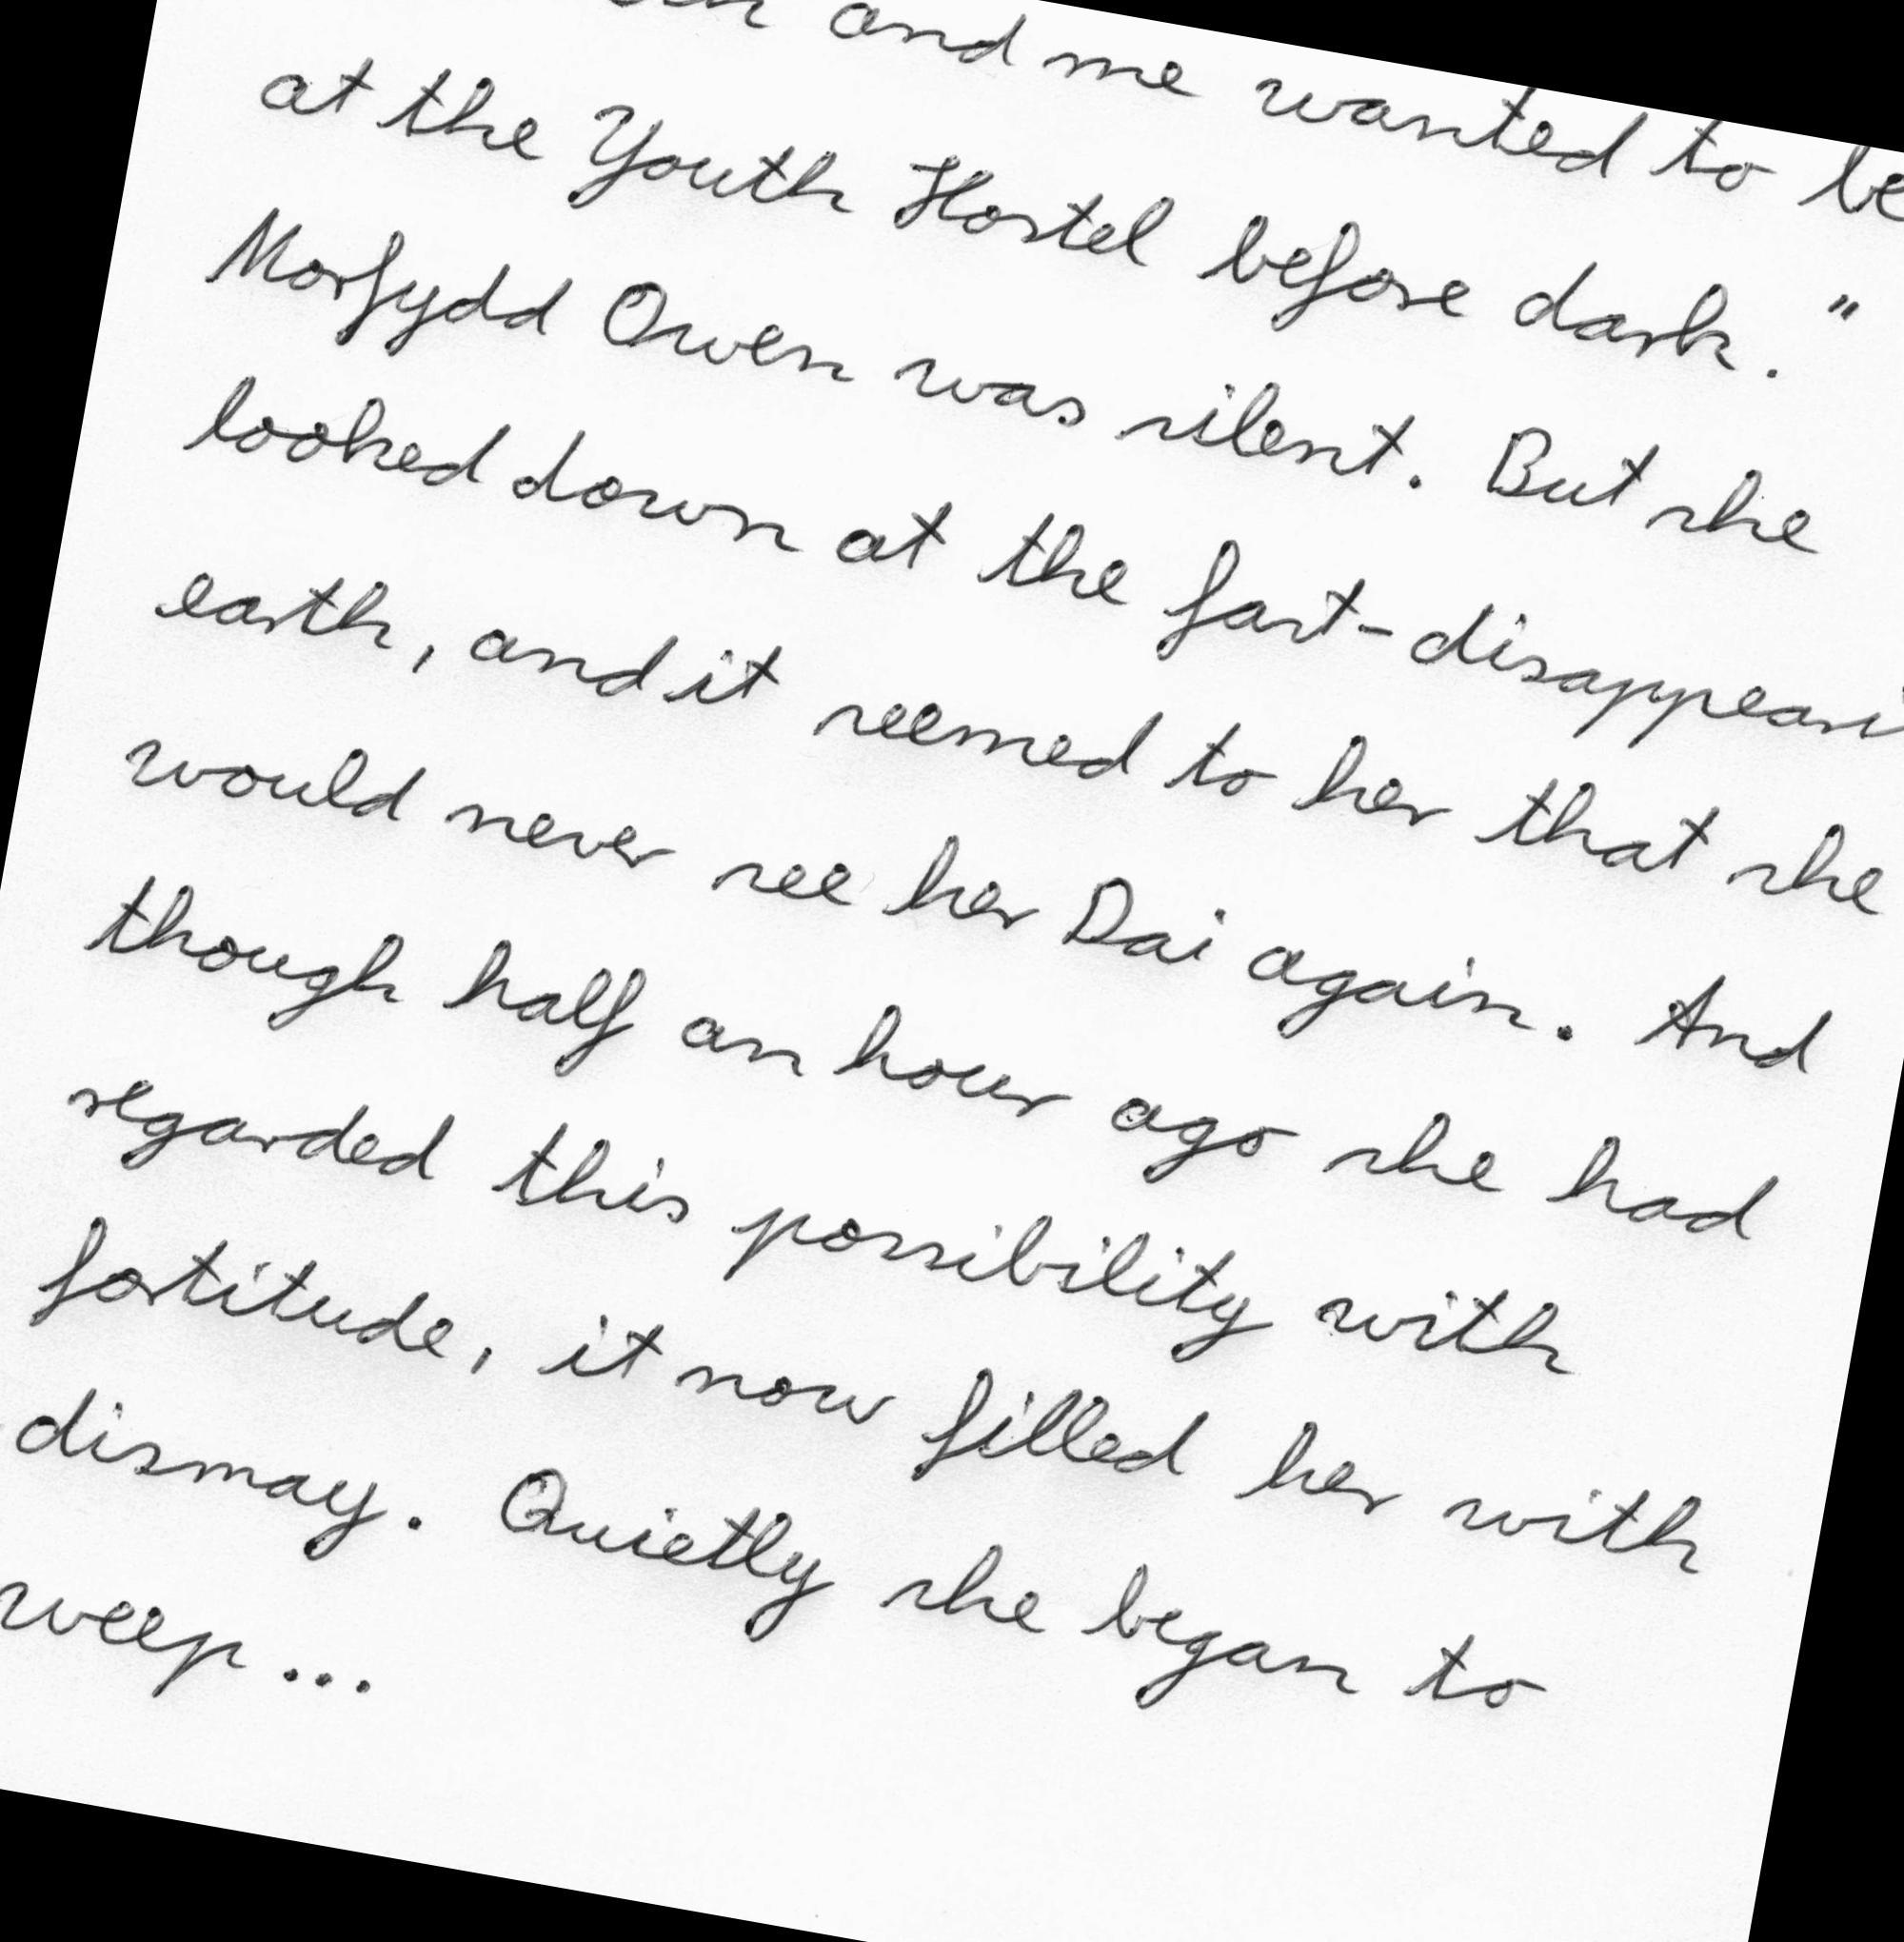 and me wanted to be
at the Youth Hostel before dark."
Morfydd Owen was silent. But she
looked down at the fast-disappeari
earth, and it seemed to her that she
would never see her Dai again. And
though half an hour ago she had
regarded this possibility with
fortitude, it now filled her with
dismay. Quietly she began to
weep...